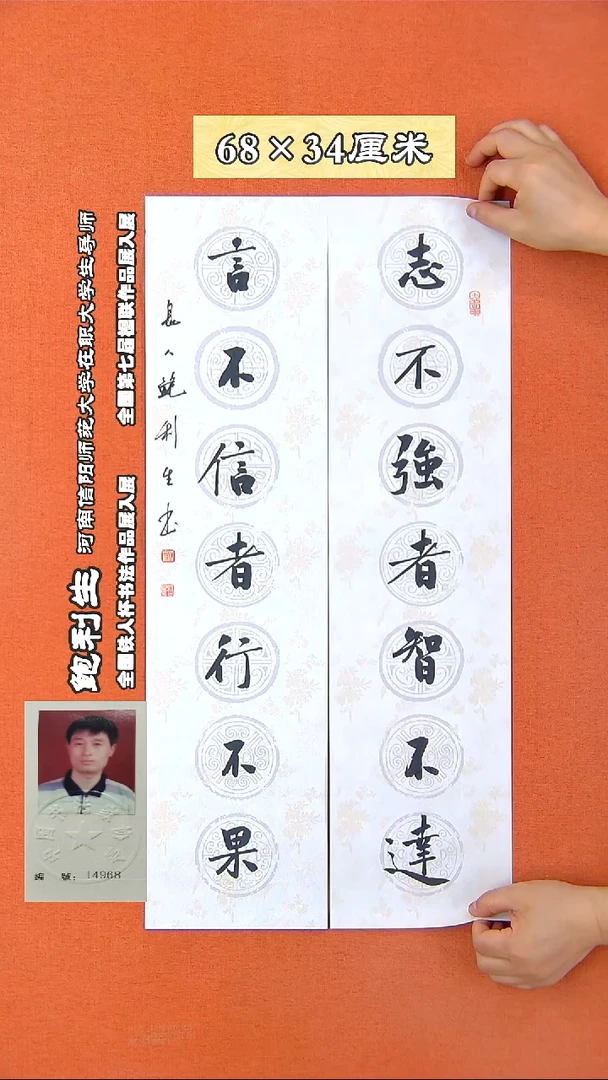 68×34厘米
志不強者智不達
言不信者行不果
長人鮑利生书
鲍利生 河南信阳师范大学在职大学生导师
全国铁人杯书法作品展入展 全国第七届楹联作品展入展
編號：14968